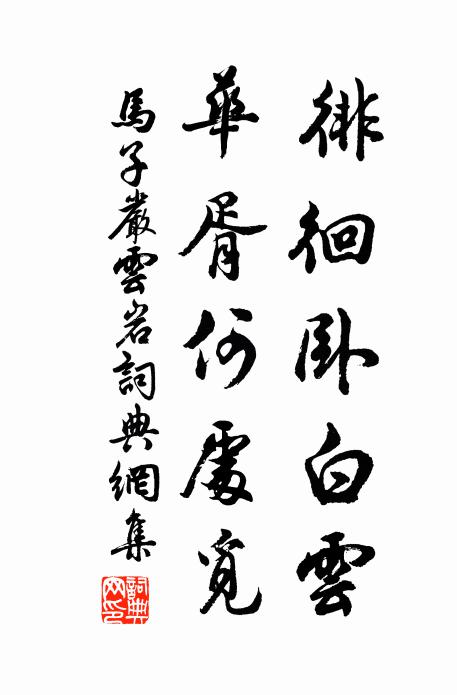 徘徊卧白雲
華胥何處覓
馬子嚴雲岩詞典網集
詞典網印